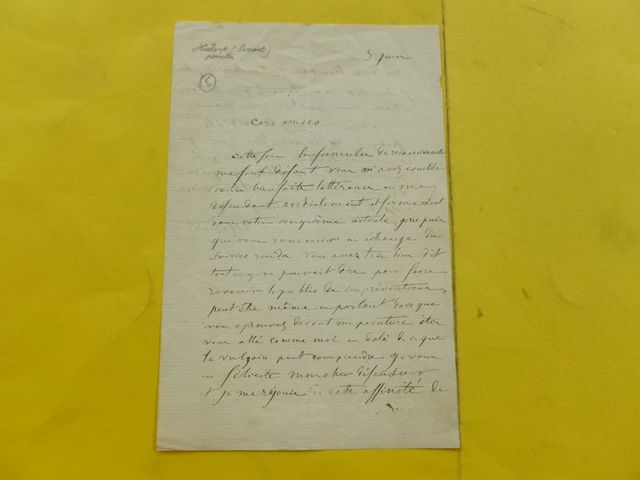 Hébert (Ernest)
peintre
5
3 juin
Caro amico
Cette fois les formules de remerciements
me font défaut vous m'avez comblé
bienfaits littéraires en me
défendant cordialement et fermement
dans votre cinquième article, je ne puis
que vous remercier en échange du
service rendu. Vous avez très bien dit
tout ce qu'on pouvait dire pour faire
revenir le public de ses préventions,
peut être même en parlant de ce que
vous éprouvez devant ma peinture êtes
vous allé comme moi au delà de ce que
le vulgaire peut comprendre. Je vous
en félicite mon cher défenseur
et je me réjouis de cette affinité de